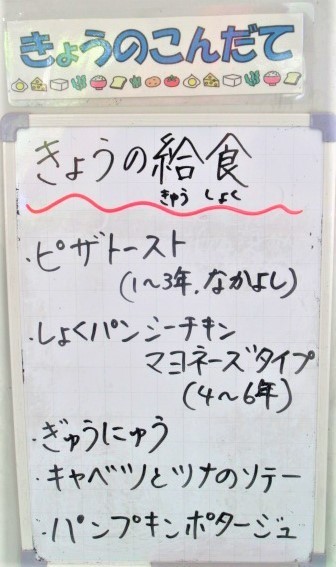 きょうのこんだて
きょうの給食
きゅう しょく
・ピザトースト
(1〜3年、なかよし)
・しょくパンシーチキン
マヨネーズタイプ
(4〜6年)
・ぎゅうにゅう
・キャベツとツナのソテー
・パンプキンポタージュ